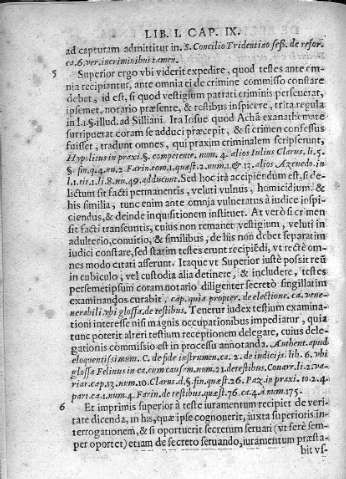 LIB. I. CAP. IX.
ad capturam admittitur in. S. Concilio Tridentino seß. de refor.
ca.6. ver. in criminibus tamen.
5 Superior ergo vbi viderit expedire, quod testes ante om-
nia recipiantur, ante omnia ei de crimine commisso constare
debet, id est, si quod vestigium patrati criminis perseuerat,
ipsemet, notario præsente, & testibus inspicere, trita regula
in l.1. §. illud. ad Sillani. Ita Iosue quod Achã ex anathemate
surripuerat coram se adduci præcepit, & si crimen confessus
fuisset, tradunt omnes, qui praxim criminalem scripserunt,
Hypolitus in praxi. §. competente num. 4. alios Iulius Clarus, li. 5.
§. fin. q. 4. nu. 2. Farin. tom. 1. quæst. 2. num. 1. & 13. alios, Azeuedo. in
l. 1. tit. 1. li. 8. nu. 49. adducunt. Sed hoc ità accipiendum est, si de-
lictum sit facti permanentis, veluti vulnus, homicidium, &
his similia, tunc enim ante omnia vulneratus à iudice inspi-
ciendus, & deinde inquisitionem instituet. At verò si crimen
sit facti transeuntis, cuius non remanet vestigium, veluti in
adulterio, conuitio, & similibus, de his non debet separatim
iudici constare, sed statim testes erunt recipiẽdi, vt rectè om-
nes modo citati asserunt. Itaque vt Superior iustè possit reũ
in cubiculo, vel custodia alia detinere, & includere, testes
persemetipsum coram notario diligenter secretò singillatim
examinandos curabit, cap. quia propter. de electione. ca. vene-
rabili. vbi glossa, de testibus. Tenetur iudex testium examina-
tioni interesse nisi magnis occupationibus impediatur, quia
tunc poterit alteri testium receptionem delegare, cuius dele-
gationis commissio est in processu annotanda. Authent. apud
eloquentissimum. C. de fide instrumen. ca. 2. de iudicijs. lib. 6. vbi
glossa Felinus in ca. cum causam. num. 21. de testibus. Couarr. li. 2. va-
riar. cap. 13. num. 10. Clarus. d. §. fin. quæst. 26. Paz. in praxi. to. 2. 4.
part. ca. 1. num. 4. Farin. de testibus. quæst. 76. ca. 4. à num. 175.
6 Et imprimis superior à teste iuramentum recipiet de veri-
tate dicenda, in his, quæ ipse cognouerit, iuxta superioris in-
terrogationem, & si oportuerit secretum seruari (vt ferè sem-
per oportet) etiam de secreto seruando, iuramentum præsta-
bit vs-